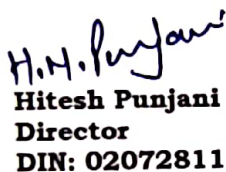 H.H. Punjani
Hitesh Punjani
Director
DIN: 02072811